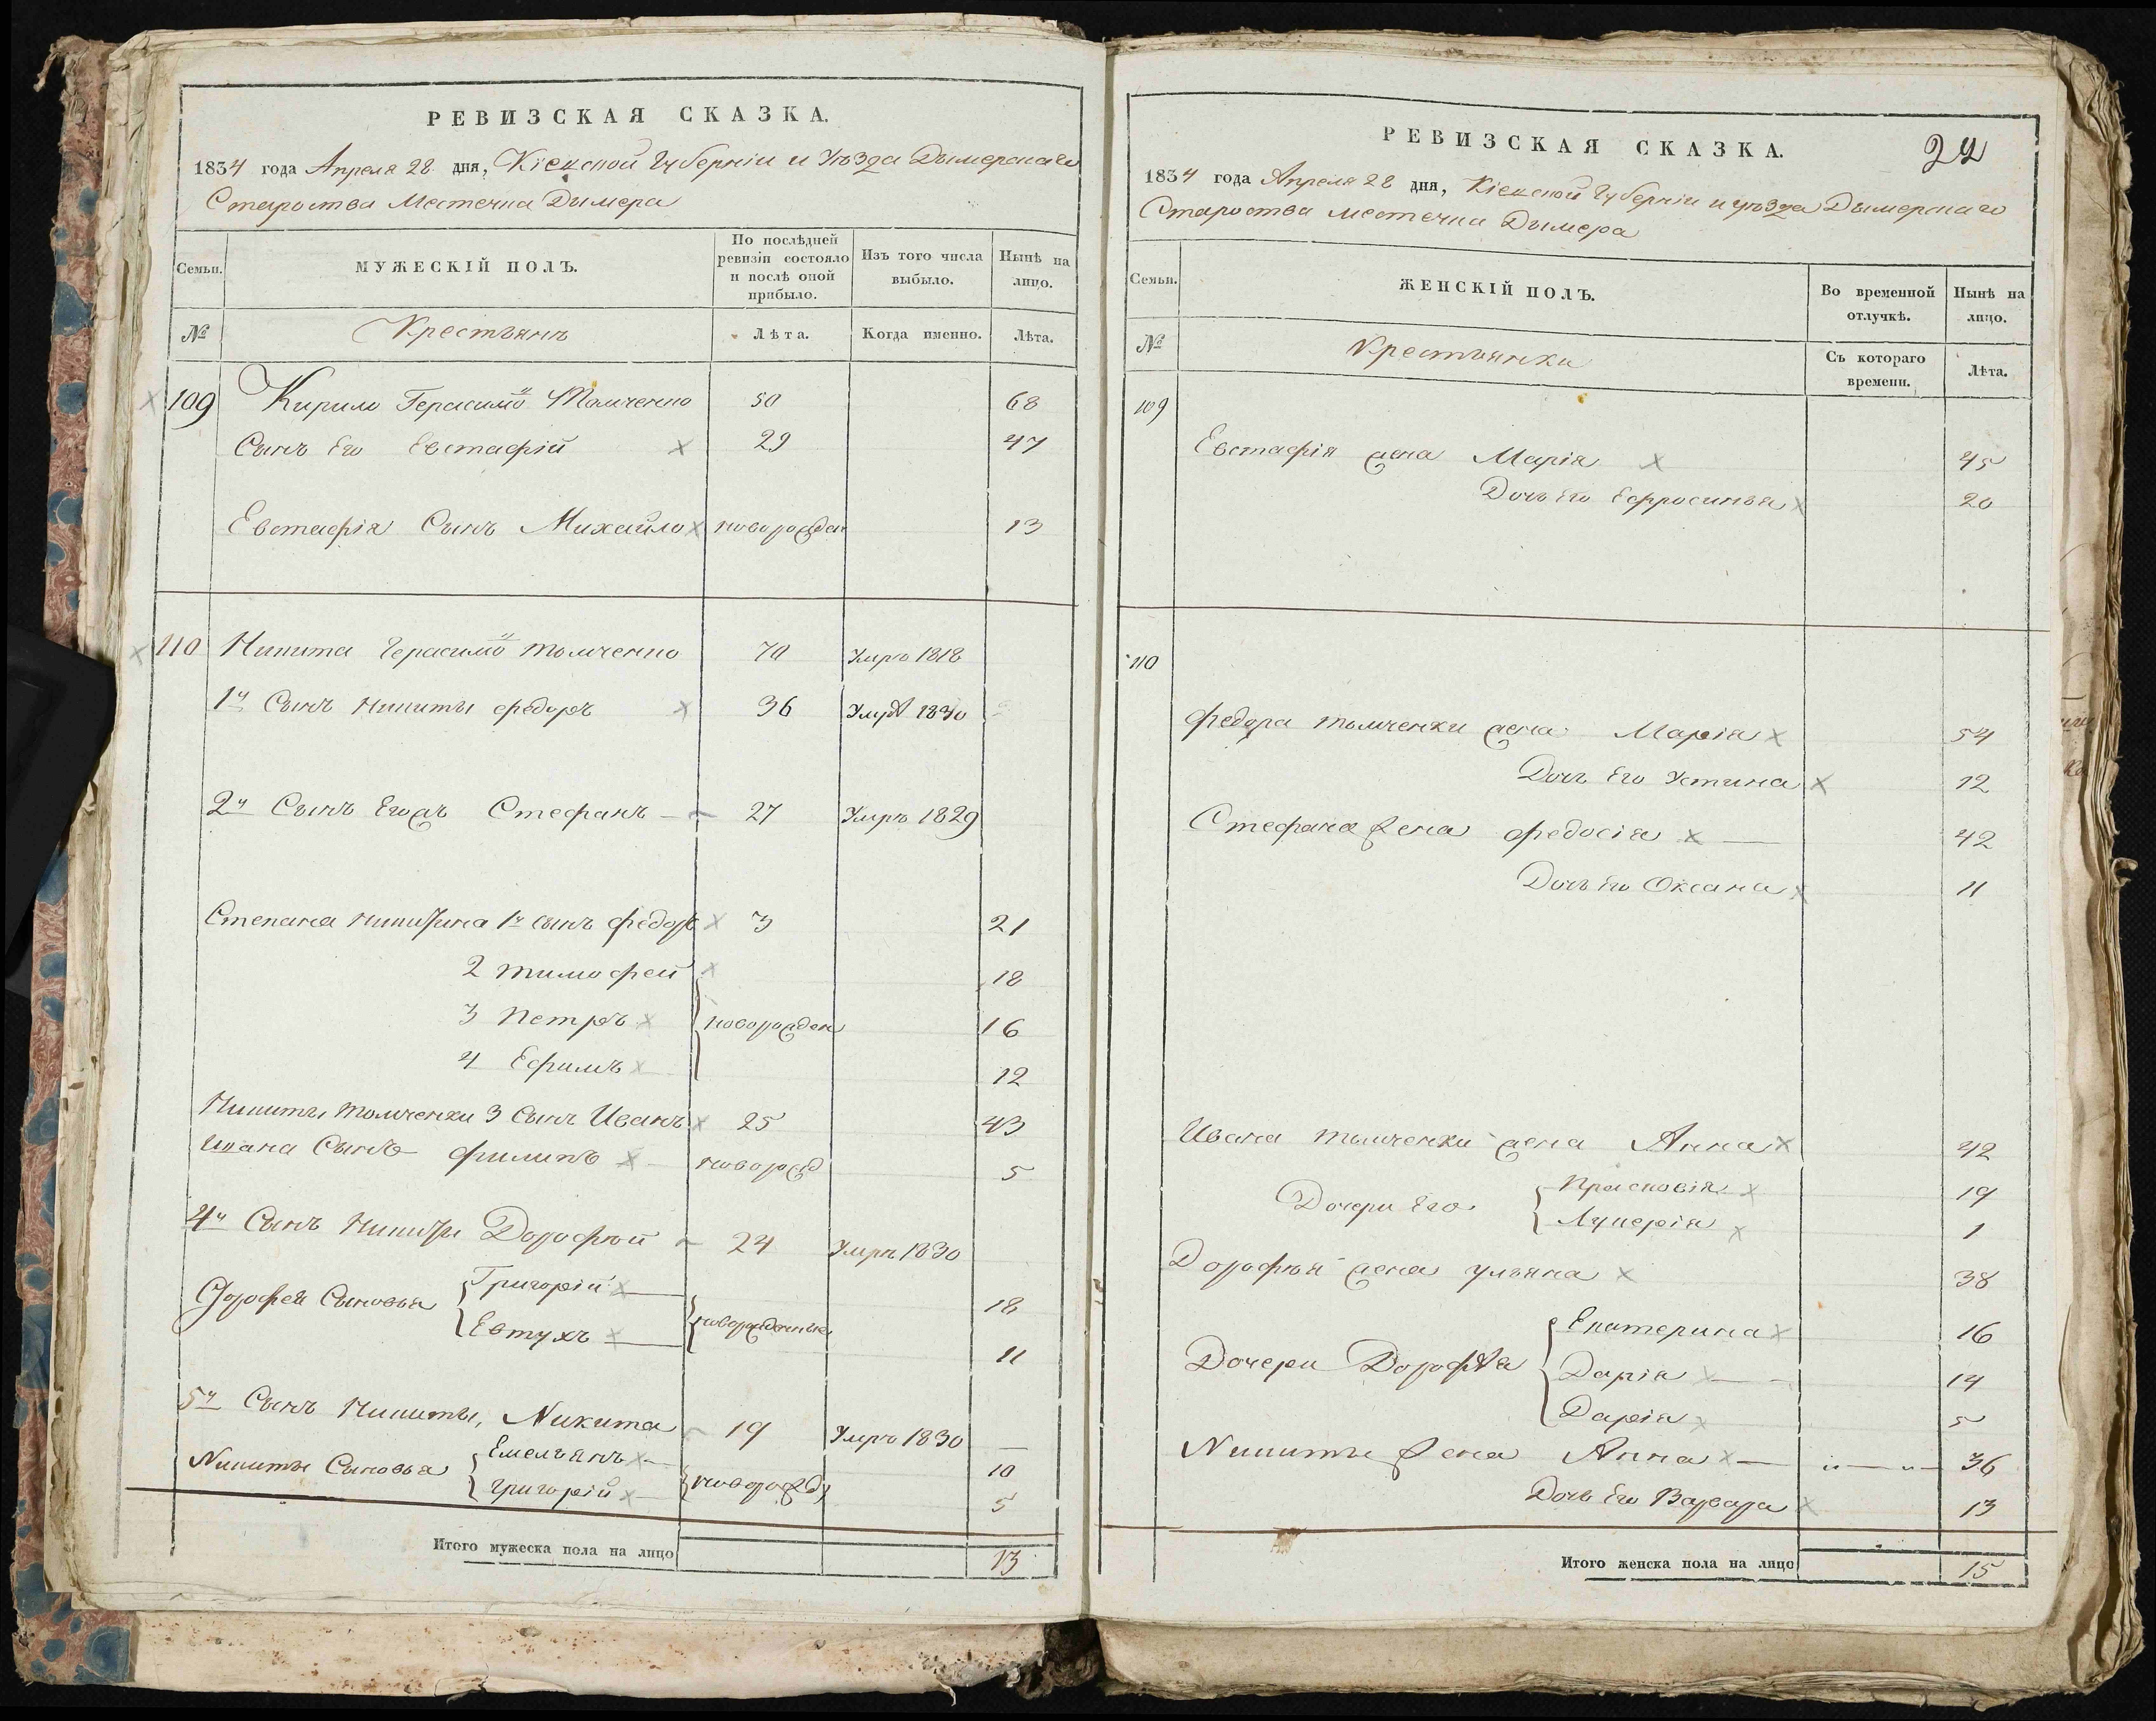 РЕВИЗСКАЯ СКАЗКА.
1834 года Апреля 28 дня, Кіевской Губерніи и Уѣзда Дымерскаго
Староства Местечка Дымера
Семьи. МУЖЕСКІЙ ПОЛЪ. По послѣдней ревизіи состояло и послѣ оной прибыло. Изъ того числа выбыло. Нынѣ на лицо.
№ Крестьянъ Лѣта. Когда именно. Лѣта.
109 Кирило Герасимо Толмченко 50 68
Сынъ Его Евстафій 29 47
Евстафія Сынъ Михайло новорожден 13
110 Никита Герасимо Толмченко 70 Умръ 1818
1й Сынъ Никиты Федоръ 36 Умръ 1830
2й Сынъ Егожъ Стефанъ 27 Умръ 1829
Степана Никитина 1й сынъ Федоръ 3 21
2 Тимофей 18
3 Петръ новорожден 16
4 Ефимъ 12
Никиты Толмченки 3 Сынъ Иванъ 25 43
Ивана Сынъ Филипъ новорожд 5
4й Сынъ Никиты Дорофѣй 24 Умръ 1830
Дорофея Сыновья Григорій 18
Евтухъ новорожденные 11
5й Сынъ Никиты, Никита 19 Умръ 1830 —
Никиты Сыновья Емельянъ 10
Григорій новорожд 5
Итого мужеска пола на лицо 13
22
РЕВИЗСКАЯ СКАЗКА.
1834 года Апреля 28 дня, Кіевской Губерніи и уѣзда Дымерскаго
Староства местечка Дымера
Семьи. ЖЕНСКІЙ ПОЛЪ. Во временной отлучкѣ. Нынѣ на лицо.
№ Крестьянки Съ котораго времени. Лѣта.
109
Евстафія жена Марія 45
Дочь Его Ефросинья 20
110
Федора Толмченки жена Марія 54
Дочь Его Устина 12
Стефана жена Федосія 42
Дочь Его Оксана 11
Ивана Толмченки жена Анна 42
Дочери Его Прасковія 19
Лукерія 1
Дорофѣя жена Ульяна 38
Екатерина 16
Дочери Дорофѣя Дарія 14
Дарія 5
Никиты жена Анна 36
Дочь Его Варвара 13
Итого женска пола на лицо 15